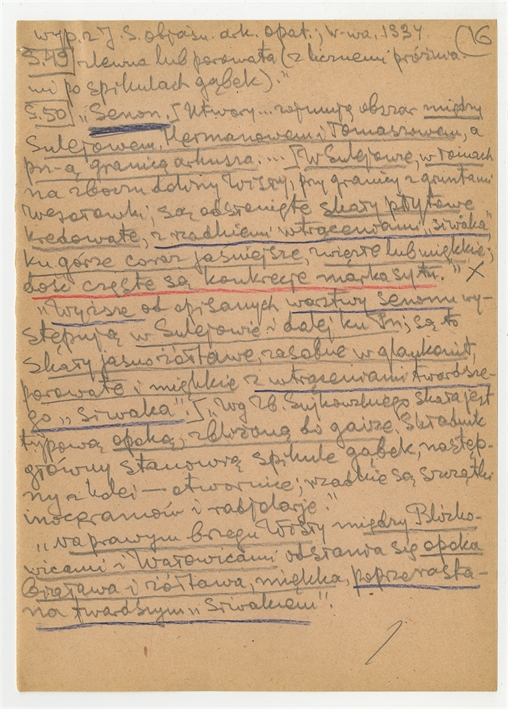 wyp. z J. S. objaśn. ark. opat.; w-wa, 1934. (16
S.49] rdewna lub porowata (z licznemi próżnia-
mi po spikulach gąbek)."
S.50] "Senon. [Utwory... zajmują obszar między
Sulejowem, Hermanowem i Tomaszowem, a
pn-ą granicą arkusza.... [W Sulejowie, w łomach
na zboczu doliny Wisły, przy granicy z gruntami
Wesołówki, są odsłonięte skały płytowe
kredowate, z rzadkiemi wtrąceniami "siwaka"
ku górze coraz jaśniejsze, więcej lub miękkie;
dość częste są konkrecje markasytu." x
"Wyższe od opisanych warstwy senonu wy-
stępują w Sulejowie i dalej ku Pn; są to
skały jasnożółtawe, zasobne w glaukonit,
porowate i miękkie z wtrąceniami twardsze-
go "siwaka". [ "Wg Zb. Sujkowskiego skała jest
typową opoką, zbliżoną do gaizy. Składnik
główny stanowią spikule gąbek, następ-
ny z kolei — otwornice; rzadkie są szczątki
inoceramów i radiolarje."
"Na prawym brzegu Wisły między Blisko-
wicami i Wałowicami odsłania się opoka
biaława i żółtawa, miękka, poprzerasta-
na twardszym "Siwakiem"."